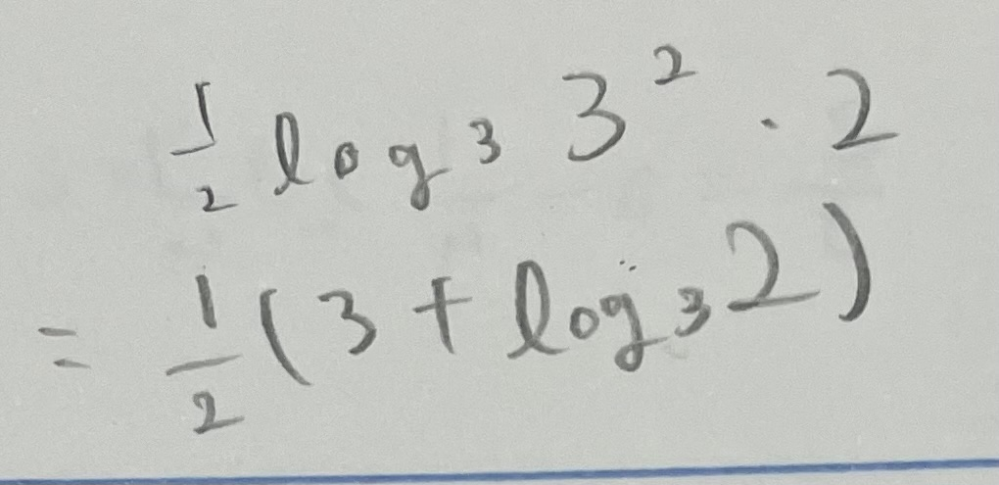 1/2 log₃ 3² · 2
= 1/2 (3 + log₃ 2)